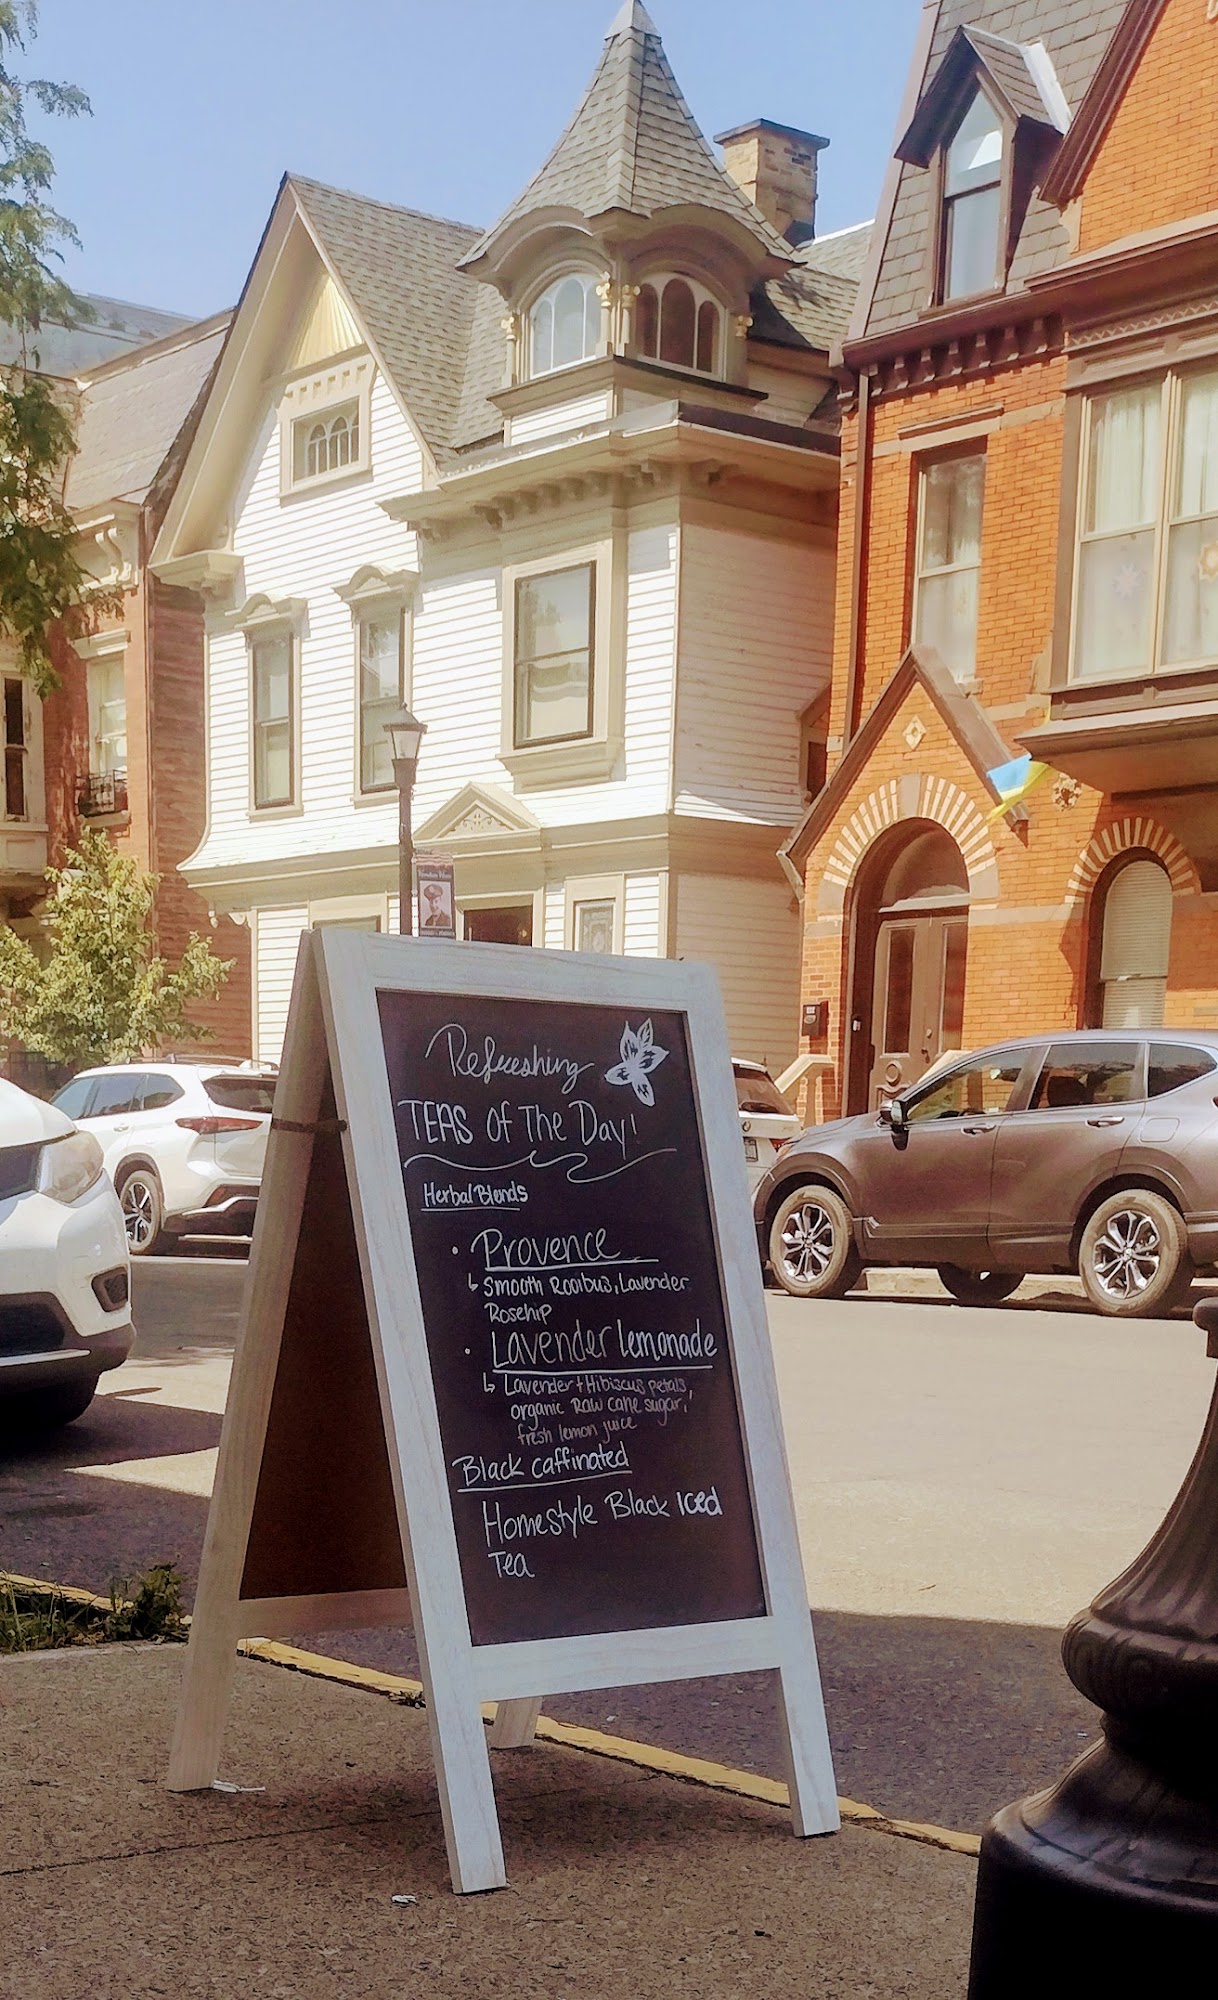 Refreshing
TEAS Of The Day!
Herbal Blends
• Provence
↳ Smooth Rooibus, Lavender
Rosehip
• Lavender Lemonade
↳ Lavender + Hibiscus petals,
organic Raw cane sugar,
fresh lemon juice
Black caffinated
Homestyle Black Iced
Tea